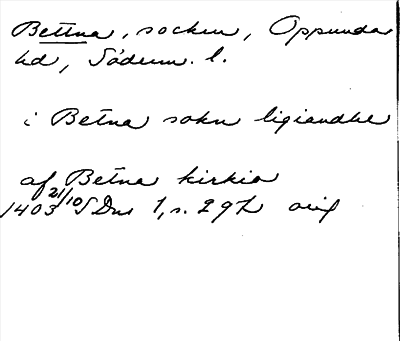 Bettna, socken, Oppunda
hd, Söderm. l.
i Betna sokn ligiandhe
af Betna kirkio
1403 21/10 SDns 1, s. 297 orig